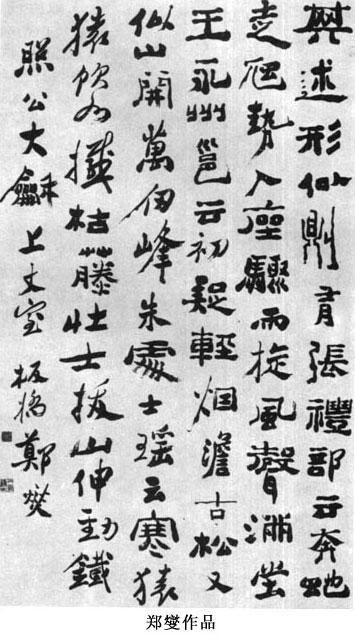 其述形似則有張禮部云奔蛇
走虺勢入座驟雨旋風聲滿堂
王永州邕云初疑輕烟澹古松又
似山開萬仞峰朱處士瑶云寒猿
猿飲水撼枯藤壯士拔山伸勁鐵
照公大龢上丈室 板橋鄭燮
郑燮作品